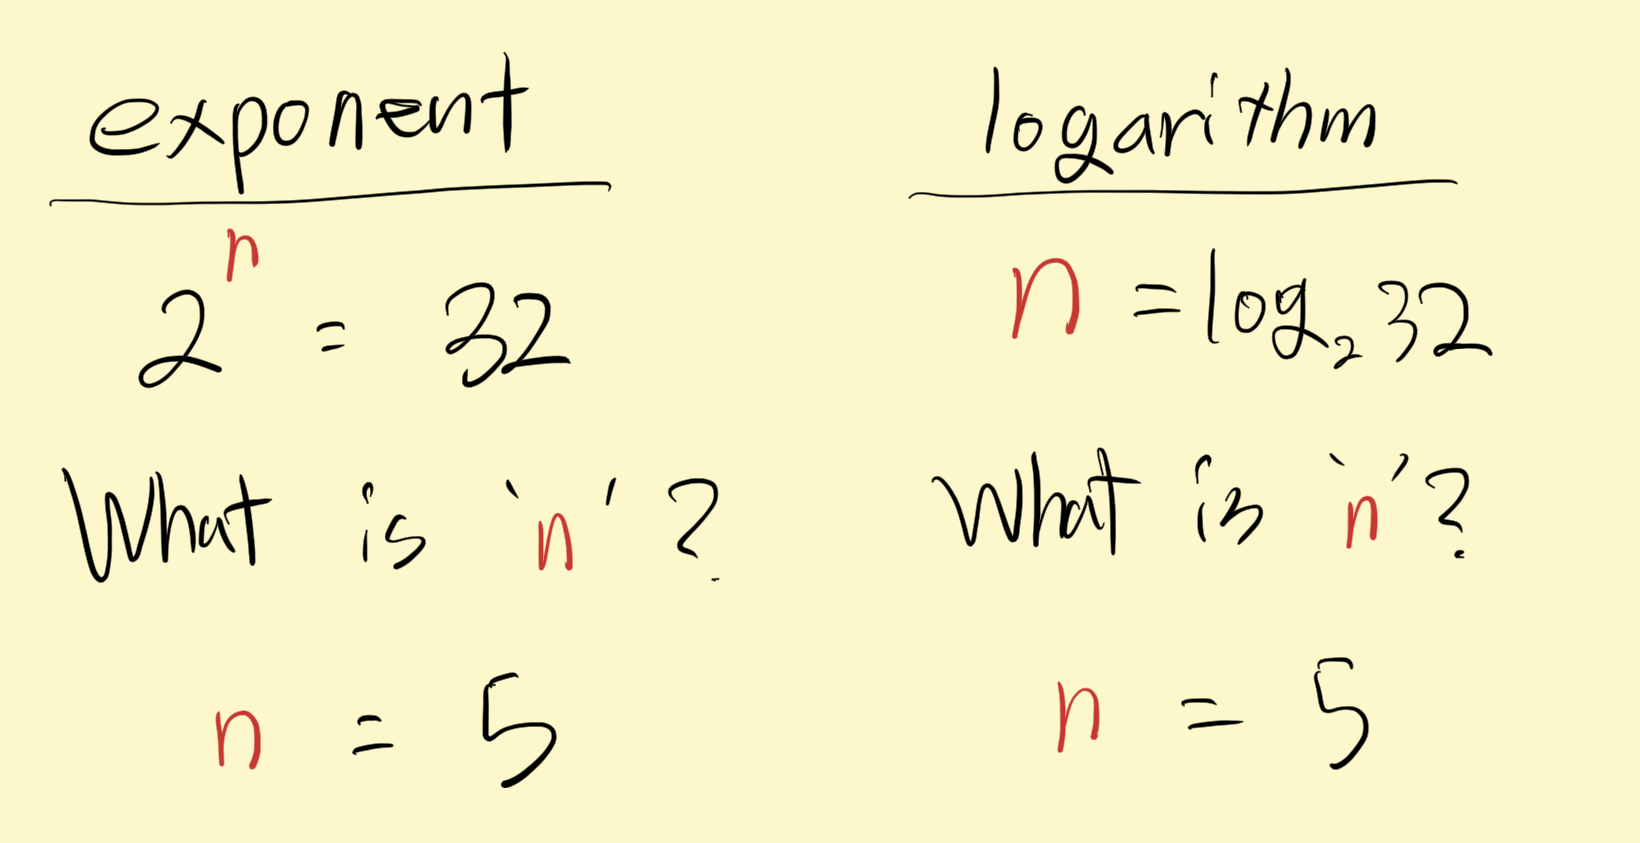 exponent
2ⁿ = 32
What is 'n'?
n = 5
logarithm
n = log₂ 32
What is 'n'?
n = 5